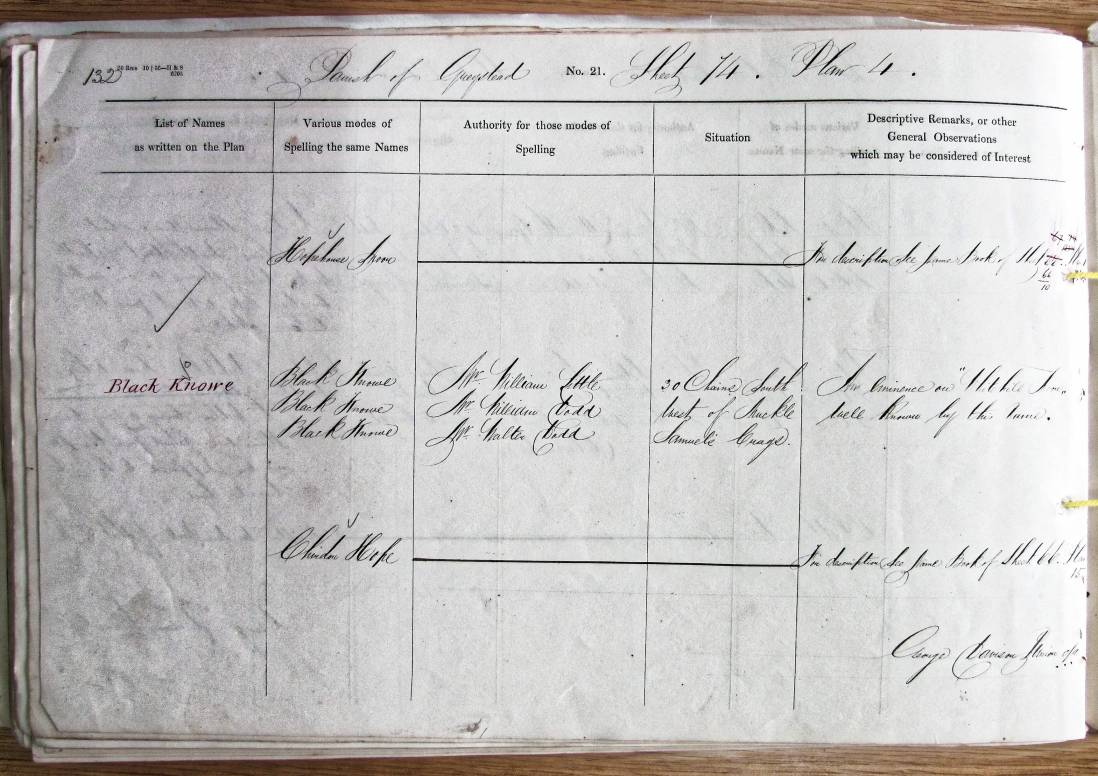 132
Parish of Greystead No. 21. Sheet 74. Plan 4.
List of Names
as written on the Plan
Various modes of
Spelling the same Names
Authority for those modes of
Spelling
Situation
Descriptive Remarks, or other
General Observations
which may be considered of Interest
Hopehouse
For description See Same Book of
Black Knowe
Black Knowe
Black Knowe
Black Knowe
Mr. William Little
Mr. William Dodd
Mr. Walter Dodd
30 Chains South
West of Muckle
Samuel's Crags.
An eminence on
well known by this name.
Chirdon Hope
For description See Same Book of Sheet 66.
15
George Davison